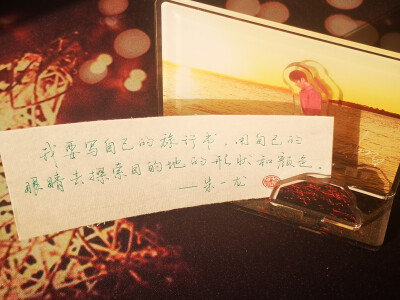 我要写自己的旅行书，用自己的
眼睛去探索目的地的形状和颜色。
——朱一龙